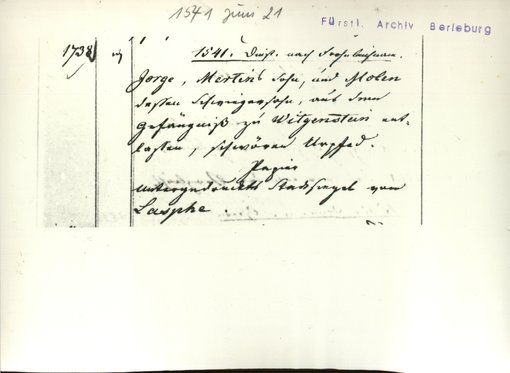 1541 Juni 21
Fürstl. Archiv Berleburg
1738 1541. Dinst. nach Frohnleichnam.
Jorge, Mertins Sohn, und Molen
dessen Schwiegersohn, aus dem
Gefängniß zu Witgenstein ent-
lassen, schwören Urpfed.
Papier
untergedrucktes Stadtsiegel von
Lasphe.